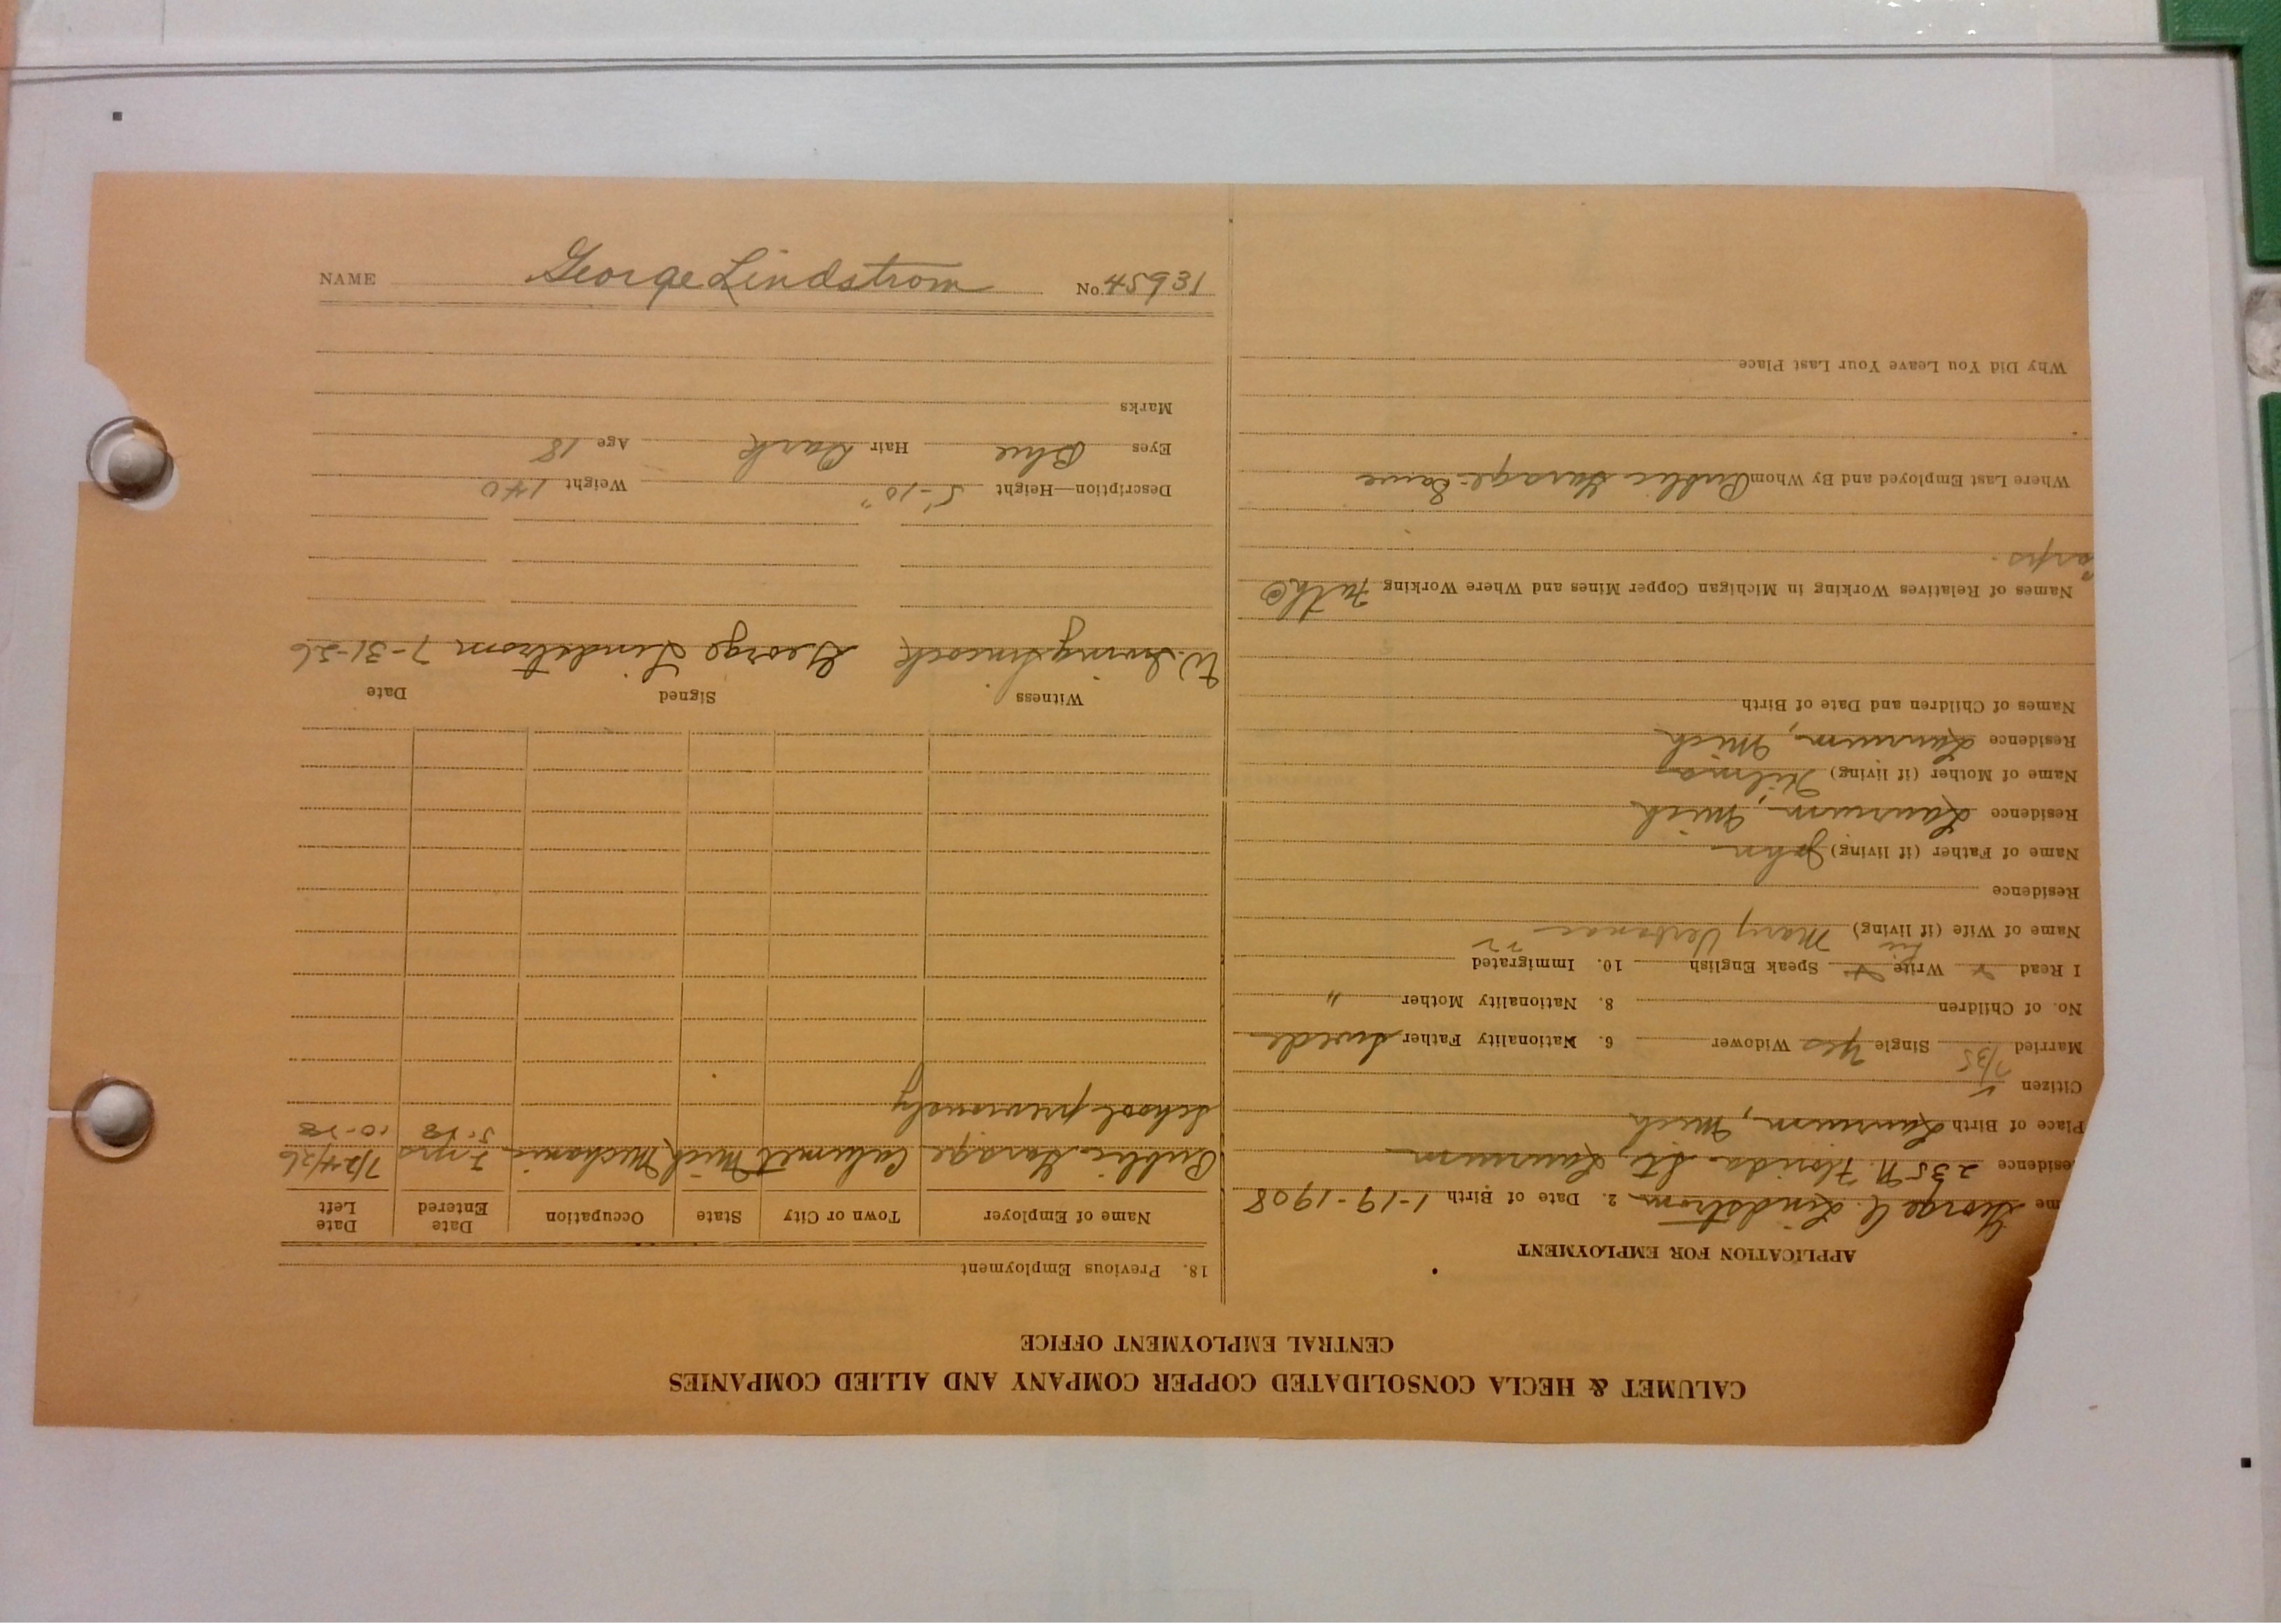 NAME George Lindstrom No. 45931
CALUMET & HECLA CONSOLIDATED COPPER COMPANY AND ALLIED COMPANIES
CENTRAL EMPLOYMENT OFFICE
APPLICATION FOR EMPLOYMENT
me George A. Lindstrom 2. Date of Birth 1-19-1908
esidence 235 N. Florida St., Laurium
Place of Birth Laurium, Mich
Citizen
7/35
Married Single Yes Widower 6. Nationality Father Swede
No. of Children 8. Nationality Mother "
I Read Write Speak English 10. Immigrated
Name of Wife (if living) Mary Verbanac
Residence
Name of Father (if living) John
Residence Laurium, Mich
Name of Mother (if living) Hilma
Residence Laurium, Mich
Names of Children and Date of Birth
Names of Relatives Working in Michigan Copper Mines and Where Working Fath@
Where Last Employed and By Whom Public Garage - Same
Why Did You Leave Your Last Place
18. Previous Employment
Name of Employer Town or City State Occupation Date Entered Date Left
Public Garage Calumet Mich Mechanic 2 yrs 7/24/26
School previously
Witness Signed Date
W. Irving George Lindstrom 7-31-26
Description—Height 5'-10" Weight 140
Eyes Blue Hair Dark Age 18
Marks